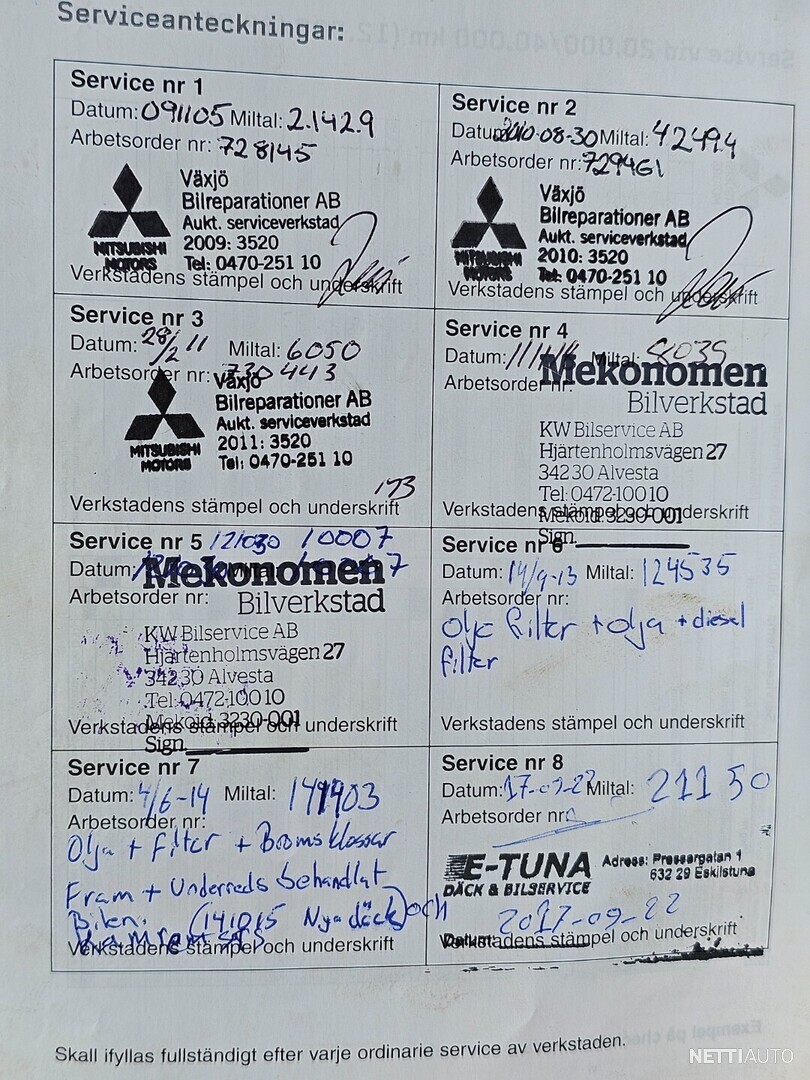 Serviceanteckningar:
Service nr 1
Datum: 091105 Miltal: 2.142.9
Arbetsorder nr: 728145
Växjö
Bilreparationer AB
Aukt. serviceverkstad
2009: 3520
Tel: 0470-251 10
MITSUBISHI
MOTORS
Verkstadens stämpel och underskrift
Service nr 2
Datum: 2010-08-30 Miltal: 42494
Arbetsorder nr: 729461
Växjö
Bilreparationer AB
Aukt. serviceverkstad
2010: 3520
Tel: 0470-251 10
MITSUBISHI
MOTORS
Verkstadens stämpel och underskrift
Service nr 3
Datum: 28/2 11 Miltal: 6050
Arbetsorder nr: 730443
Växjö
Bilreparationer AB
Aukt. serviceverkstad
2011: 3520
Tel: 0470-251 10
MITSUBISHI
MOTORS
173
Verkstadens stämpel och underskrift
Service nr 4
Datum: Miltal: 8039
Arbetsorder nr:
Mekonomen
Bilverkstad
KW Bilservice AB
Hjärtenholmsvägen 27
342 30 Alvesta
Tel: 0472-100 10
Mekoid: 3230-001
Verkstadens stämpel och underskrift
Sign.
Service nr 5 121030 10007
Datum:
Mekonomen
Arbetsorder nr:
Bilverkstad
KW Bilservice AB
Hjärtenholmsvägen 27
342 30 Alvesta
Tel: 0472-100 10
Mekoid: 3230-001
Verkstadens stämpel och underskrift
Sign.
Service nr 6
Datum: 14/9-13 Miltal: 124535
Arbetsorder nr:
Olje filter + olja + diesel
filter
Verkstadens stämpel och underskrift
Service nr 7
Datum: 4/6-14 Miltal: 141903
Arbetsorder nr:
Olja + filter + Bromsklossar
Fram + Underreds behandlat
Bilen. (141015 Nya däck) och
Kamrem
Verkstadens stämpel och underskrift
Service nr 8
Datum: 17-09-22 Miltal: 21150
Arbetsorder nr:
E-TUNA
DÄCK & BILSERVICE
Adress: Pressargatan 1
632 29 Eskilstuna
2017-09-22
Datum:
Verkstadens stämpel och underskrift
Skall ifyllas fullständigt efter varje ordinarie service av verkstaden.
NETTIAUTO